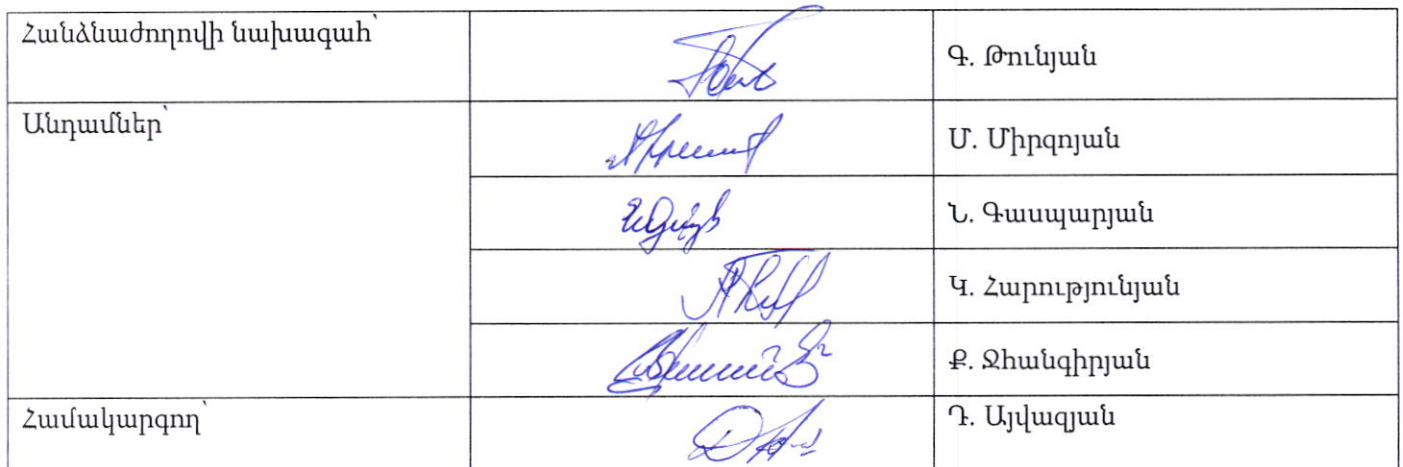 Հանձնաժողովի նախագահ՝
Գ. Թունյան
Անդամներ՝
Մ. Միրզոյան
Ն. Գասպարյան
Կ. Հարությունյան
Ք. Ջհանգիրյան
Համակարգող՝
Դ. Այվազյան